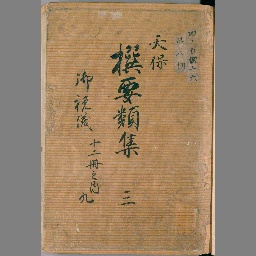 天保
撰要類集 三
御祝儀
十二冊之内
九